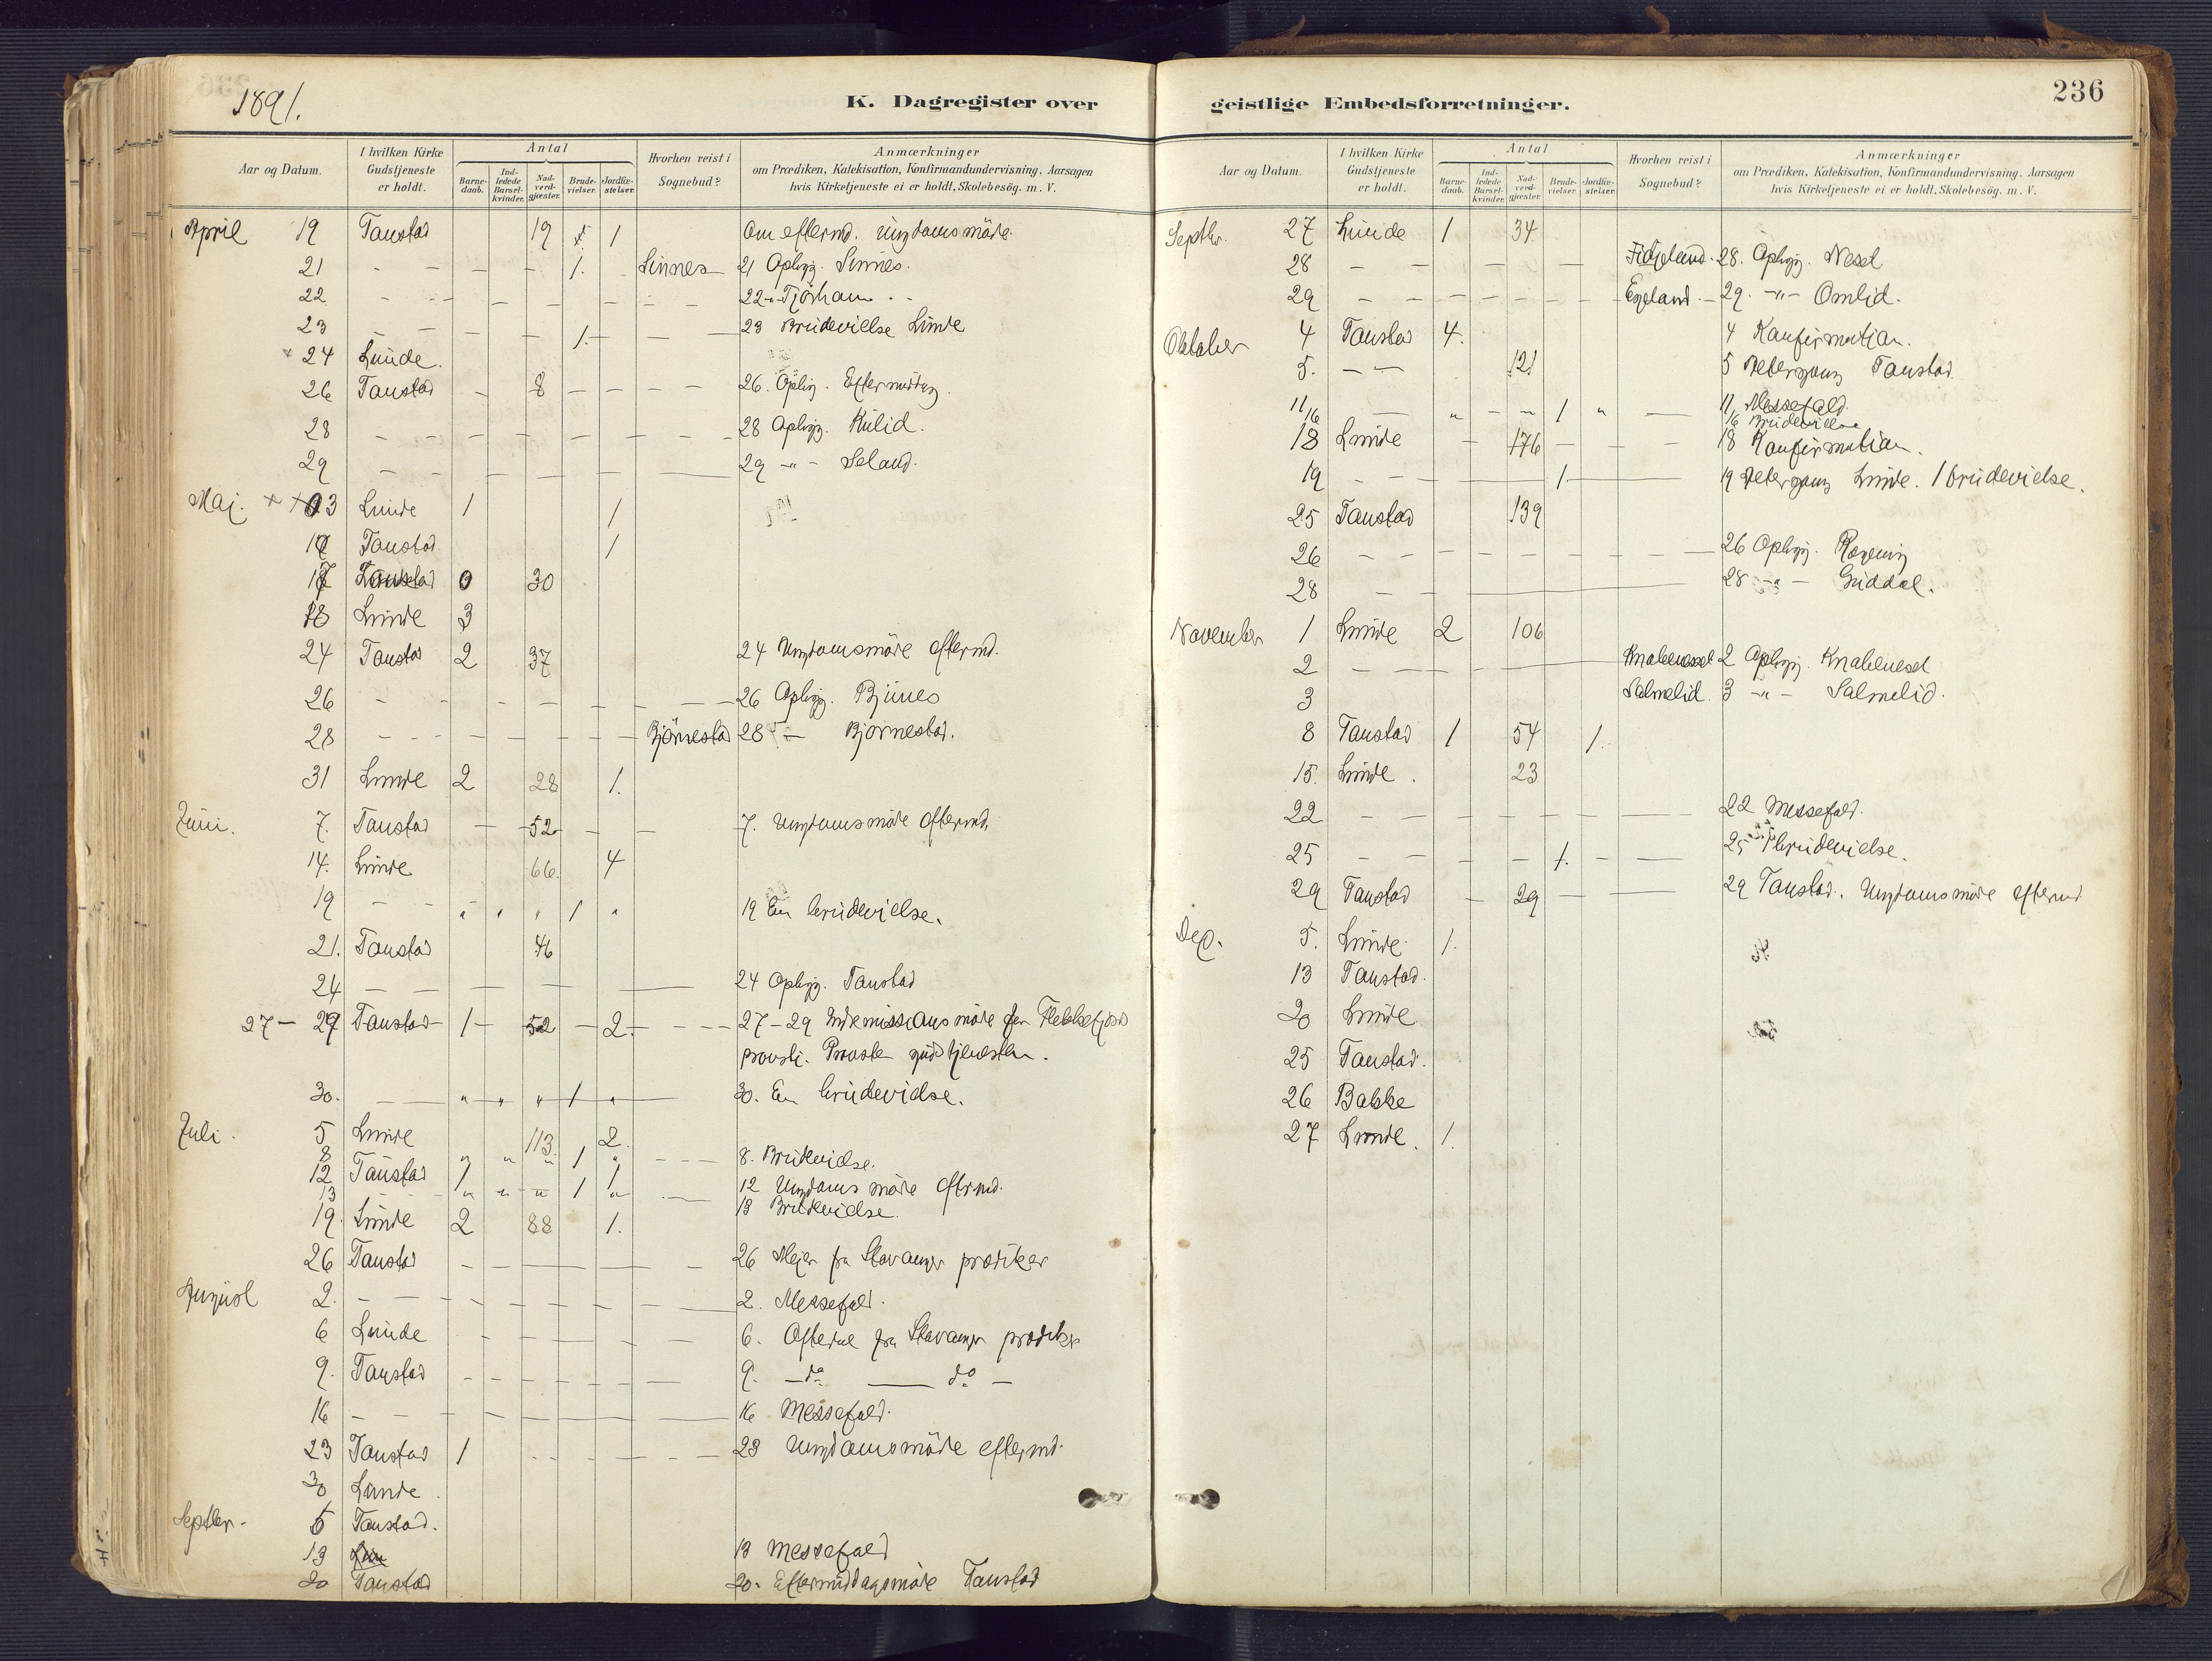 1891.
K. Dagregister over
Aar og Datum. I hvilken Kirke Gudstjeneste er holdt. Antal Barne-daab. Ind-ledede Barsel-kvinder. Nad-verd-gjæster. Brude-vielser. Jordfæ-stelser. Hvorhen reist i Sognebud? Anmærkninger om Prædiken, Katekisation, Konfirmandundervisning, Aarsagen hvis Kirketjeneste ei er holdt, Skolebesøg. m. V.
April 19 Tanstad 19 1 Om eftermd. ungdomsmöde
21 - - - - - 1. Sinnes 21 Opbyg. Sinnes.
22 - - - - - - - - 22 -"- Tjörham . -
23 - - - - 1. - - 23 Brudevielse Lunde
x 24 Lunde.
26 Tanstad - 8 - - - - 26. Opbyg. Eftermiddag
28 - - - - - - - - 28 Opbyg. Kvlid.
29 - - - - - - 29 -"- Seland.
Maj. 3 Lunde 1 1
Tanstad 1
17 Tanstad 0 30
18 Lunde 3
24 Tanstad 2 37 24 Ungdomsmöde eftermd.
26 - - - - - - - - 26 Opbyg. Bjunes
28 - - - - - - - Bjørnestad 28 -"- Bjørnestad.
31 Lunde 2 28 1.
Juni. 7. Tanstad - 52 - - 7. Ungdomsmöde Eftermd.
14. Lunde 66. 4
19 - - " " " 1 " 19 En brudevielse.
21. Tanstad 46
24 - - - - - - 24 Opbyg. Tanstad
27 - 29 Tanstad 1 - 52 - 2. - - - 27-29 Indremissionsmöde for Flekkefjord
provsti. Provsten gudstjenesten.
30. - - " " " 1 " - 30. En brudevielse.
Juli. 5 Lunde 113. 2.
8 " " " 1 " - - - 8. Brudevielse.
12 Tanstad 1 1 12 Ungdomsmöde eftrmd.
13 " " " 1 " - 13 Brudevielse
19. Lunde 2 88 1.
26 Tanstad - - - - - 26 Mejer fra Stavanger prædiker
August 2. - - - - - - - - 2. Messefald.
6 Lunde - - - - - 6. Oftedal fra Stavanger prædiker
9. Tanstad - - - - - - 9. - do - do -
16 - - - - - - - 16 Messefald.
23 Tanstad 1 - - - - - - 23 Ungdomsmöde eftermd.
30 Lunde.
Septbr. 6 Tanstad.
13 13 Messefald
20 Tanstad 20. Eftermiddagsmöde Tanstad
236
geistlige Embedsforretninger.
Aar og Datum. I hvilken Kirke Gudstjeneste er holdt. Antal Barne-daab. Ind-ledede Barsel-kvinder. Nad-verd-gjæster. Brude-vielser. Jordfæ-stelser. Hvorhen reist i Sognebud? Anmærkninger om Prædiken, Katekisation, Konfirmandundervisning, Aarsagen hvis Kirketjeneste ei er holdt, Skolebesøg. m. V.
Septbr. 27 Lunde 1 34
28 - - - - - - Fidjeland. 28. Opbyg. Neset
29 - - - - - - - Egeland. 29. -"- Omlid.
Oktober 4 Tanstad 4. 4 Konfirmation.
5. - - 121 5 Altergang Tanstad.
11/16 - " - - 1 " - 11 Messefald.
16 Brudevielse
18 Lunde - 176 - - - 18 Konfirmation.
19 - - - 1. - 19 Altergang Lunde. 1 brudevielse.
25 Tanstad 139
26 - - - - - - - - 26 Opbyg.
28 - - - 28 -"- Guddal.
November 1 Lunde 2 106
2 - - - - Knabeneset 2 Opbyg. Knabeneset
3 Salmelid. 3 -"- Salmelid.
8 Tanstad 1 54 1.
15. Lunde. 23
22 - - - - - - - - 22 Messefald.
25 - - - - 1. - - 25 1 brudevielse.
29 Tanstad - 29 - - 29 Tanstad. Ungdomsmöde eftermd
Dec. 5. Lunde 1.
13 Tanstad.
20 Lunde.
25 Tanstad.
26 Bakke
27 Lunde. 1.